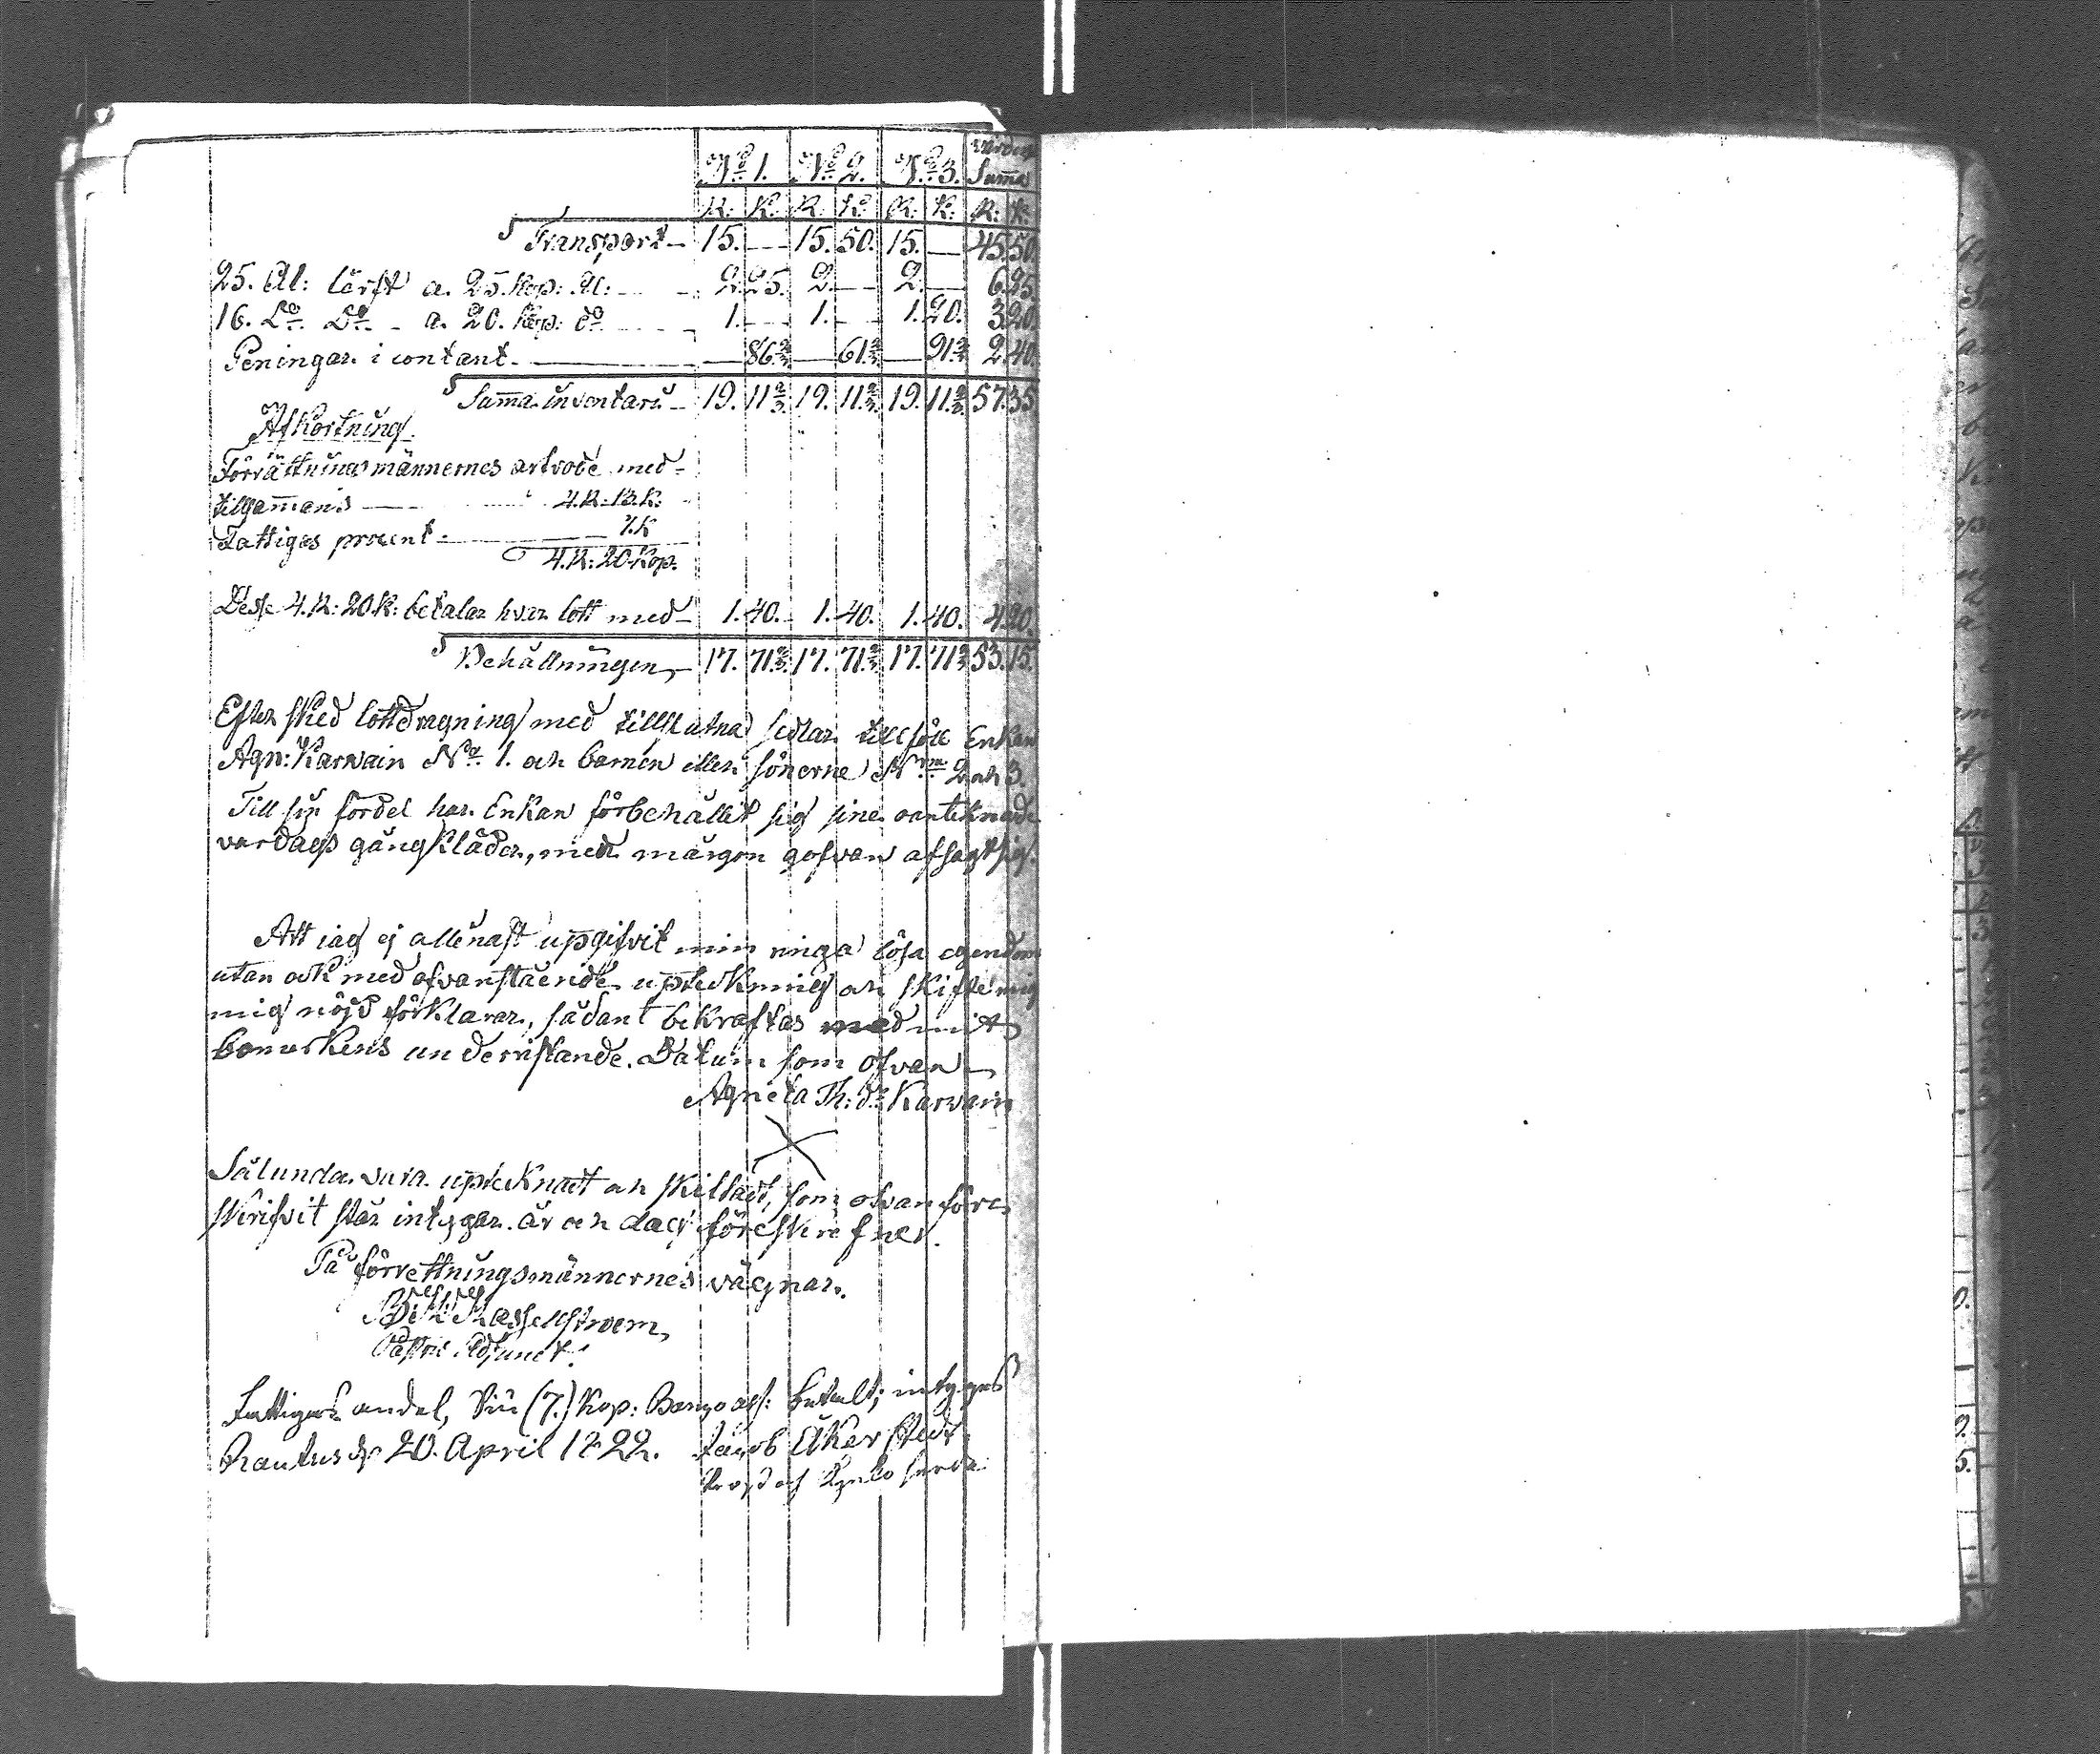 No 1. No 2. No 3. Summa
R: K: R: K: R: K: R: K:
Transport 15. — 15. 50. 15. — 45.50.
25. Al: lärft a. 25. Kop: Al: 2.25. 2. — 2. — 6.25.
16. Do Do a. 20. Kop: do 1. — 1. — 1.20. 3.20.
Peningar i contant — 86 2/3 — 61 2/3 — 91 2/3 2.40.
Summa inventarii 19. 11 2/3. 19. 11 2/3. 19. 11 2/3. 57.35
Afkortning.
Förrättningsmännernes arfvode med
tillsammans 4.R: 13.K:
Fattiges procent 7.K
4.R: 20 Kop.
Desse 4.R: 20.K: betalar hvar lott med 1.40. 1.40. 1.40. 4.20.
Behållningen 17. 71 2/3. 17. 71 2/3. 17. 71 2/3 53.15.
Efter sked lottdragning med tillslutna sedlar tillföll Enkan
Agn: Karvain No 1. och barnen eller sönerne 2 och 3.
Till sin fördel har Enkan förbehållit sig sine oanteknade
vardags gångkläder, men margon gofvan afsagt sig.
Att iag ej allenast upgifvit min ringa lösa egendom
utan ock med ofvanstående upteckning och skifte
mig nöjd förklarar, sådant bekräftas med mitt
bomerkens underristande. Datum som ofvan
Agneta Th: dr Karvain
X
Sålunda vara upteknadt och skiftadt, som ofvanföre
skrifvit står intygar. år och dag föreskrefner.
På förrettningsmännernes vägnar.
Hasselstroem,
Past: Adjunct.
Fattigas andel, Siu (7.) Kop: Banco ass: betalt; intygas
Rautus d. 20. April 1822. Jacob Åkerstedt